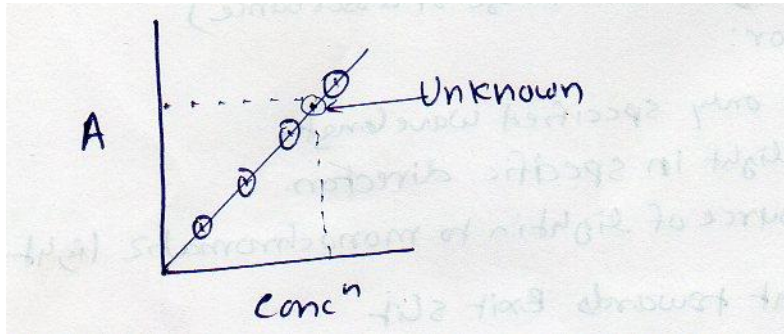 Unknown
A
concⁿ